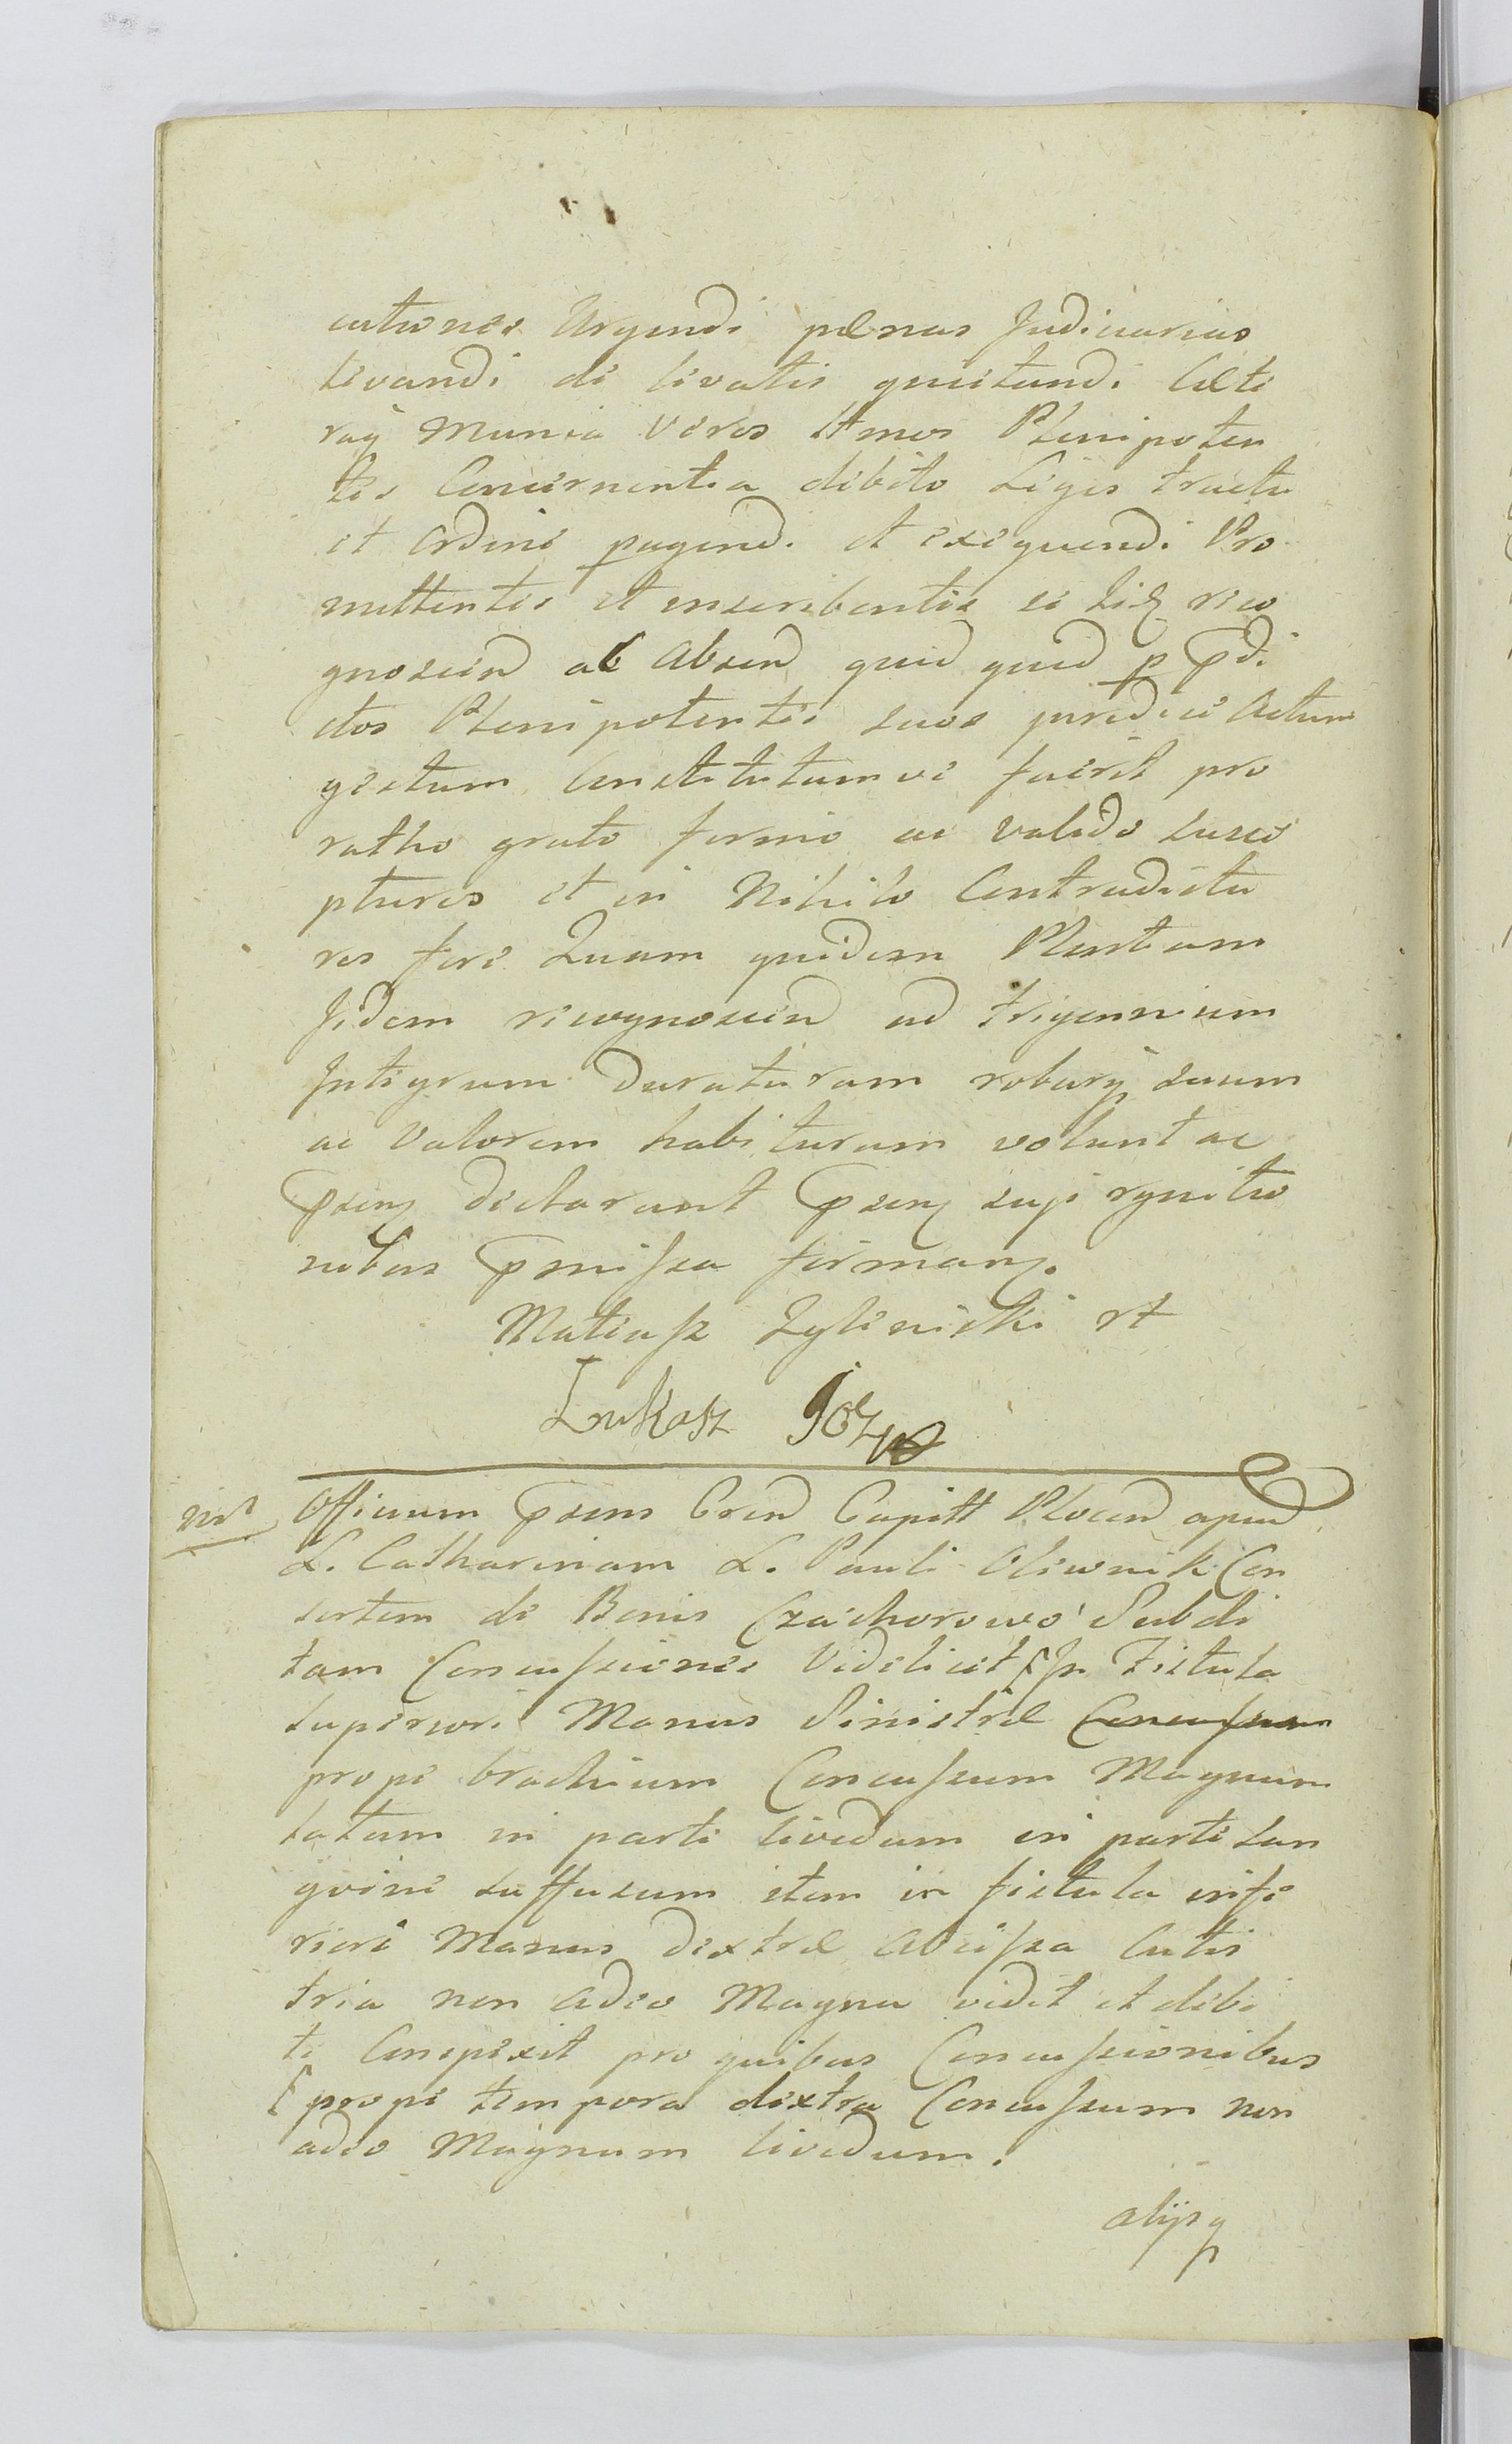 cutiones Urgendi pænas Judiciarias
levandi de levatis quietandi Cæte
raq Munia veros ltmos Plenipoten
tes Concernentia debito Legis tractu
et ordine pagend. et exequendi Pro
mittentes et inscribentes se hicq reco
gnoscen ac Absen quid quid p pdi
ctos Plenipotentes suos juredice Actum
gestum Constitutumve fuerit pro
ratho grato firmo ac valido susce
pturos et in Nihilo Contradictu
ros fore Quam quidem Plentiam
Jidem recognoscen ad trigennium
Integrum Duraturam roburq suum
ac Valorem habituram volunt ac
psenq declarant psenq supi rgnitio
nibus pmissa firmanq.
Matiasz Zglinicki rt
Lukasz
Vis
Officium psens Cren Capitt Plocen apud
L. Catharinam L. Pauli Oliwnik Con
sortem de Bonis Czachorowo Subdi
tam Concussiones Videlicet In Fistula
superiori Manus Sinistræ Concussum
prope brachium Concussum Magnum
latum in parte lividum in parte san
gvine suffusum item in fistula infe
riori Manus dextræ Abcissa Cutis
tria non adeo Magna vidit et debi
te Conspexit pro quibus Concussionibus
prope tempora dextra Concussum non
adeo Magnum lividum.
alijsq